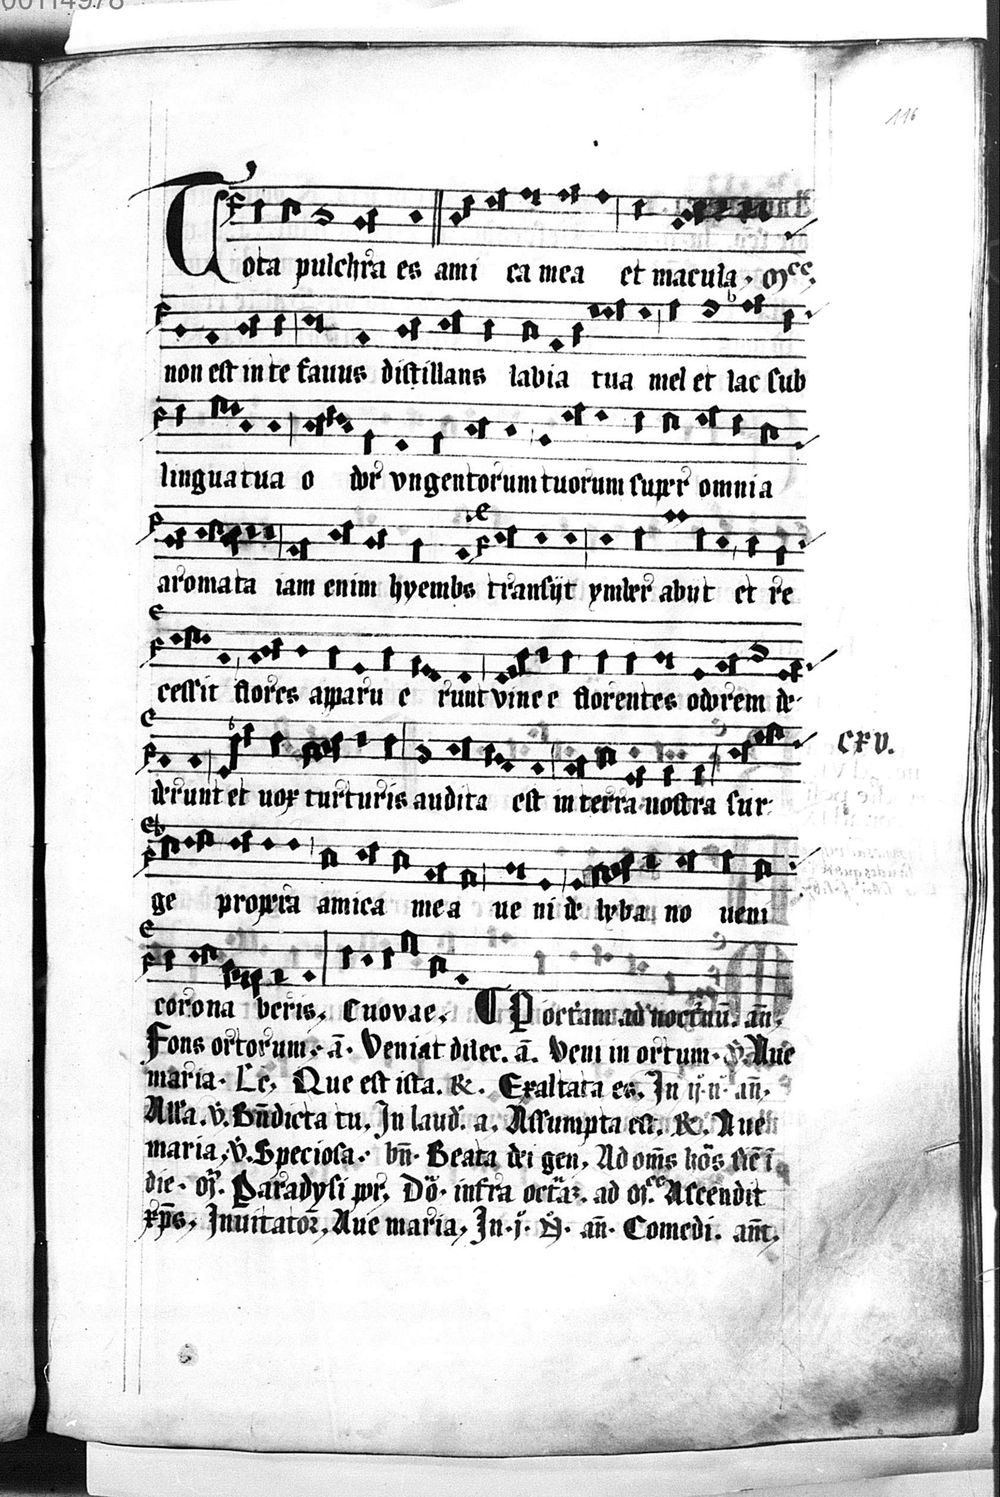 00114978
116
Tota pulchra es ami ca mea et macula. 
non est in te fauus distillans labia tua mel et lac sub
lingua tua o dor vngentorum tuorum super omnia
aromata iam enim hyembs transijt ymber abijt et re
cessit flores apparu e runt vinee florentes odorem de
CXV.
derunt et uox turturis audita est in terra nostra sur
ge propera amica mea ue ni de lyba no ueni
corona beris. Euovae. Per octauam ad nocturnū. an̄.
Fons ortorum. ā. Veniat dilec. ā. Veni in ortum. v̄. Aue
maria. Le. Que est ista. &. Exaltata es. In ij. n̄. an̄.
Alla. v̄. Bn̄dicta tu. In laud. a. Assumpta est. &. Aue
maria. v̄. Speciosa. bn̄. Beata dei gen. Ad om̄s hōs
die. Paradysi por. Dō. infra octā. ad Ascendit
xp̄s. Inuitator. Aue maria. In. j. N̄. an̄. Comedi. an̄t.